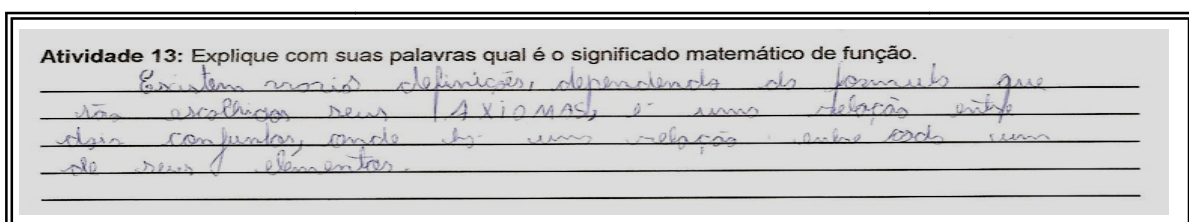 Atividade 13: Explique com suas palavras qual é o significado matemático de função.
Existem varias definições, dependendo da formula que
são escolhidos seus AXIOMAS, é uma relação entre
dois conjuntos, onde há uma relação entre cada um
de seus elementos.